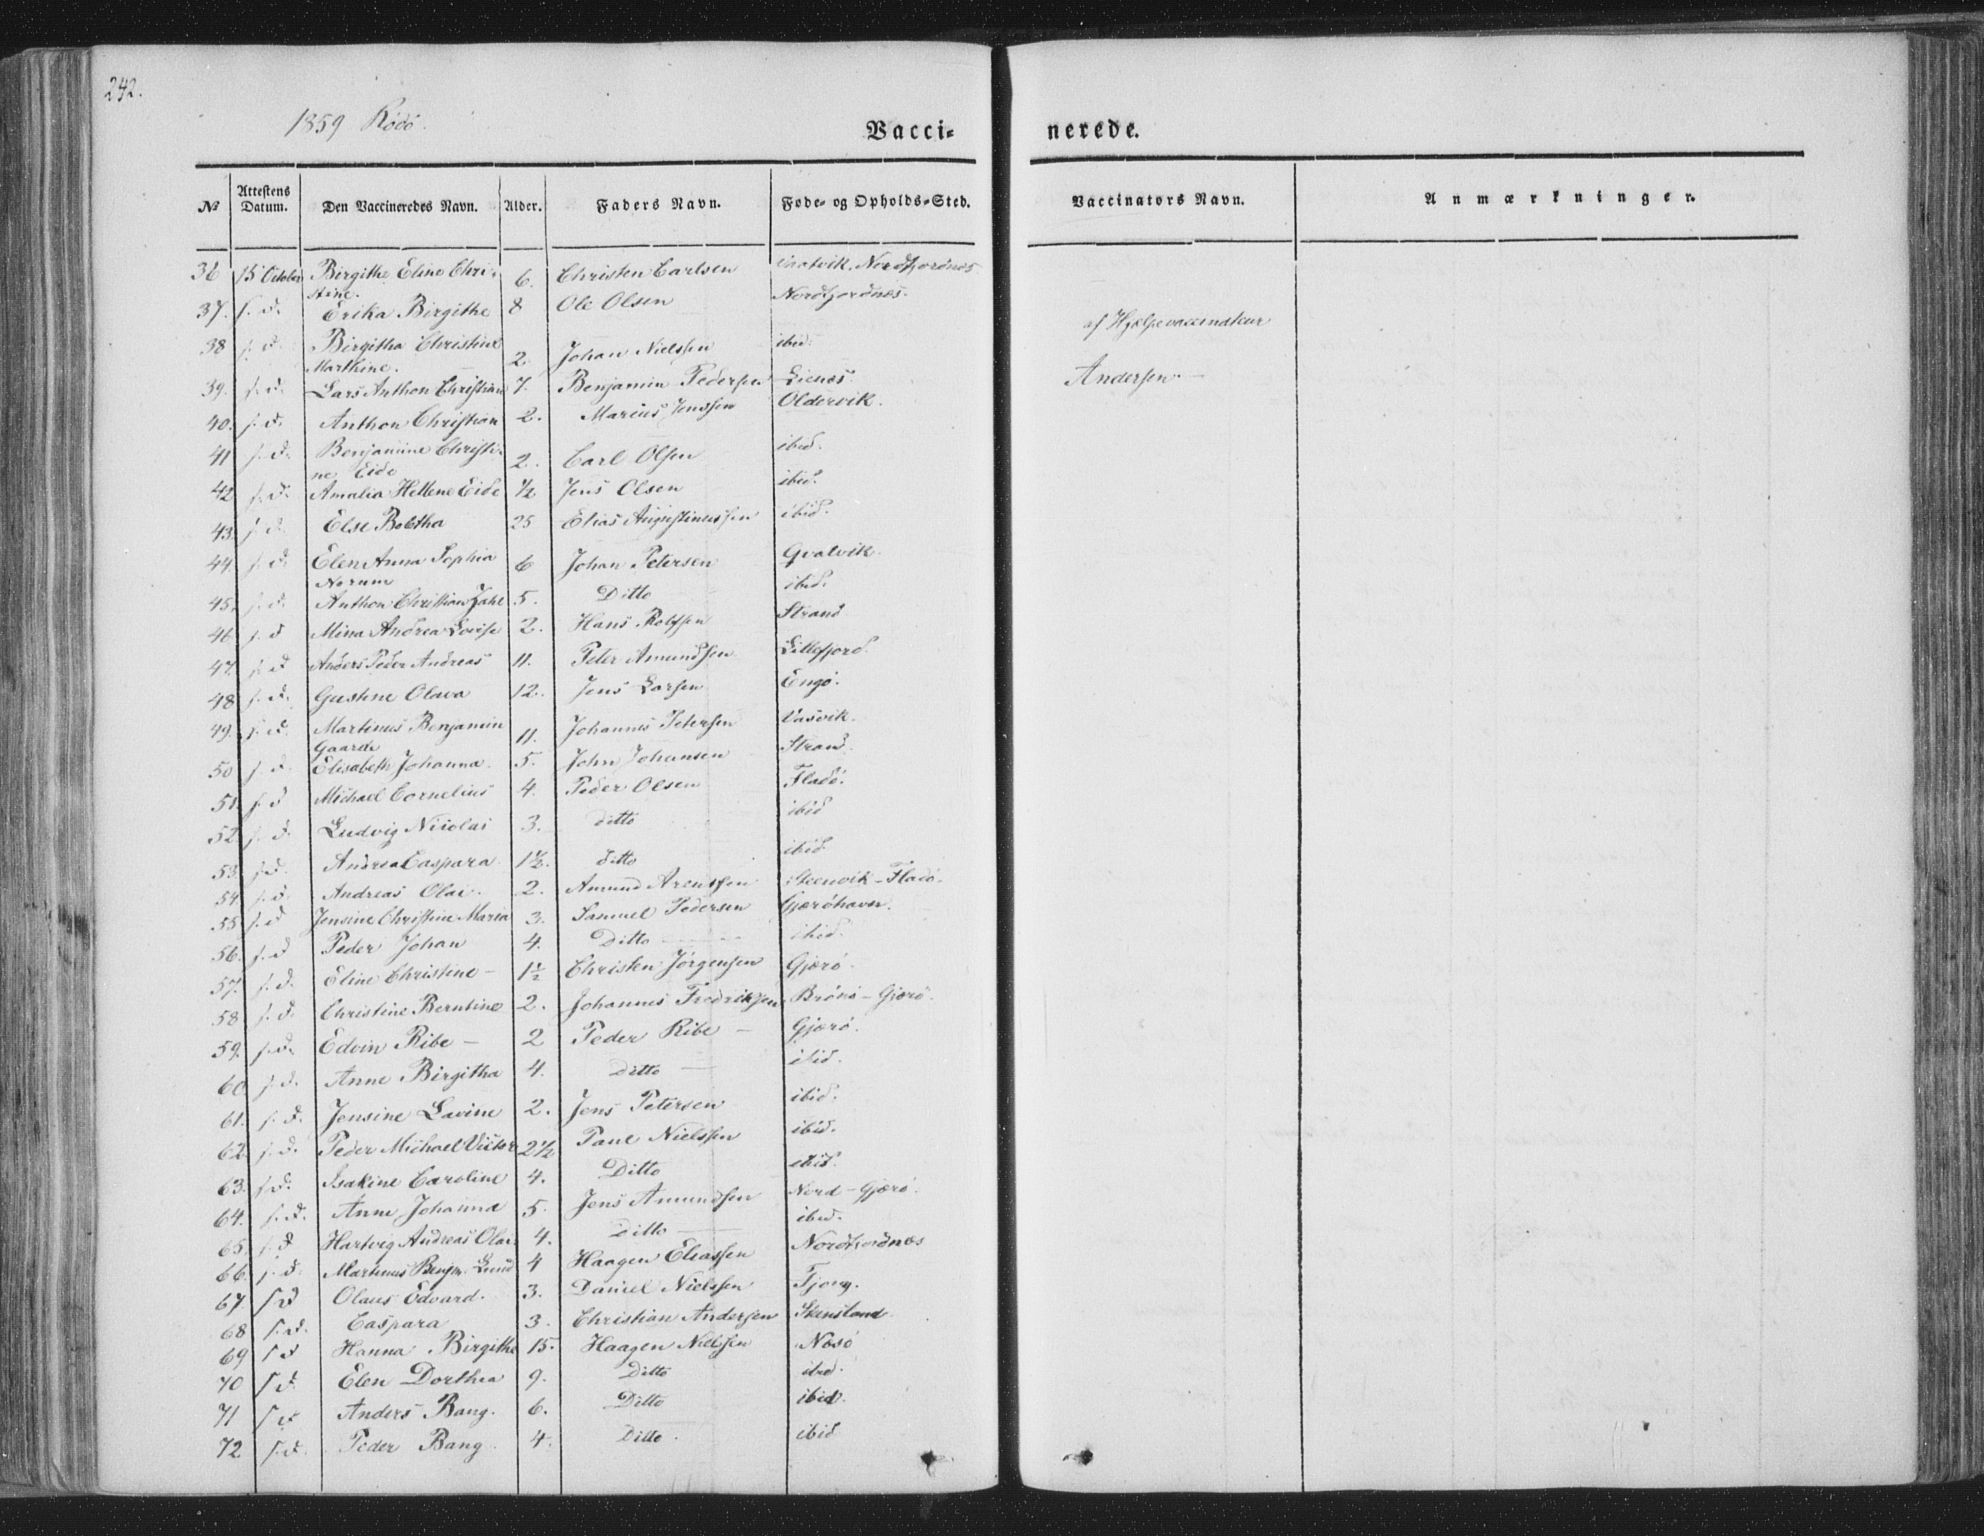 242.
1859 Rödö.
Vacci-
nerede.
No Attestens Datum. Den Vaccineredes Navn. Alder. Faders Navn. Føde- og Opholds-Sted. Vaccinators Navn. Anmærkninger.
36 15 October Birgithe Eline Chri- 6. Christen Carlsen Nordfjordnæs
stine.
37. s. d. Erika Birgithe 8 Ole Olsen Nordfjordnæs.
af Hjælpevaccinateur
38 s. d. Birgitha Christine 2. Johan Nielssen ibid.
Marthine.
39. s. d. Lars Anthon Christian 7. Benjamin Pedersen Lienæs.
Andersen.
40. s. d. Anthon Christian 2. Marius Jenssen Oldervik.
41 s. d. Benjamine Christi- 2. Carl Olsen ibid.
ne Eide
42 s. d. Amalia Hellene Eide 1/2 Jens Olsen ibid.
43. s. d. Else Boletha 25 Elias Augustinussen ibid.
44. s. d. Elen Anna Sophia 6 Johan Petersen Qvalvik.
Norum
45. s. d. Anthon Christian Zahl 5. Ditto ibid.
46. s. d Mina Andrea Lovise 2. Hans Rolfsen Strand
47. s. d Anders Peder Andreas 11. Peter Amundsen Lillefjord.
48 s. d. Gustine Olava 12. Jens Larsen Engö.
49. s. d. Martinus Benjamin 11. Johannes Petersen Vasvik.
Gaarde
50 s. d. Elisabeth Johanna. 5. John Johansen Strand.
51. s. d Michael Cornelius 4. Peder Olsen Fladö.
52. s. d. Ludvig Nicolai 3. ditto ibid
53. s. d. Andrea Caspara 1 1/2. ditto ibid
54 s. d. Andreas Olai. 2. Amund Arentsen Steenvik - Fladö.
55. s. d Jensine Christine Maria 3. Samuel Pedersen Gjæröhavn.
56. s. d Peder Johan 4. Ditto ibid.
57. s. d. Eline Christine - 1 1/2 Christen Jörgensen Gjærö.
58 s. d. Christine Berntine 2. Johannes Fredriksen Brönö - Gjærö.
59. s. d. Edvin Ribe - 2 Peder Ribe - Gjærö.
60 s. d. Anne Birgitha 4. ditto ibid.
61. s. d. Jensine Lavine 2. Jens Petersen ibid.
62. s. d. Peder Michael Victor 2 1/2 Paul Nielssen ibid.
63. s. d. Isakine Caroline 4. Ditto ibid.
64. s. d. Anne Johanna 5. Jens Amundsen Nord - Gjærö.
65. s. d Hartvig Andreas Olai. 4. ditto ibid.
66. s. d. Martinus Benjm. Lund 4 Haagen Eliassen Nordfjordnæs
67 s d Olaus Edvard. 3. Daniel Nielssen Tjong.
68 s. d. Caspara 3. Christian Andersen Stensland
69 s d Hanna Birgithe 15. Haagen Nielssen Næsö
70 s d. Elen Dorthea 9. Ditto ibid.
71 s d Anders Bang. 6. Ditto ibid.
72 s. d. Peder Bang. 4. Ditto. ibid